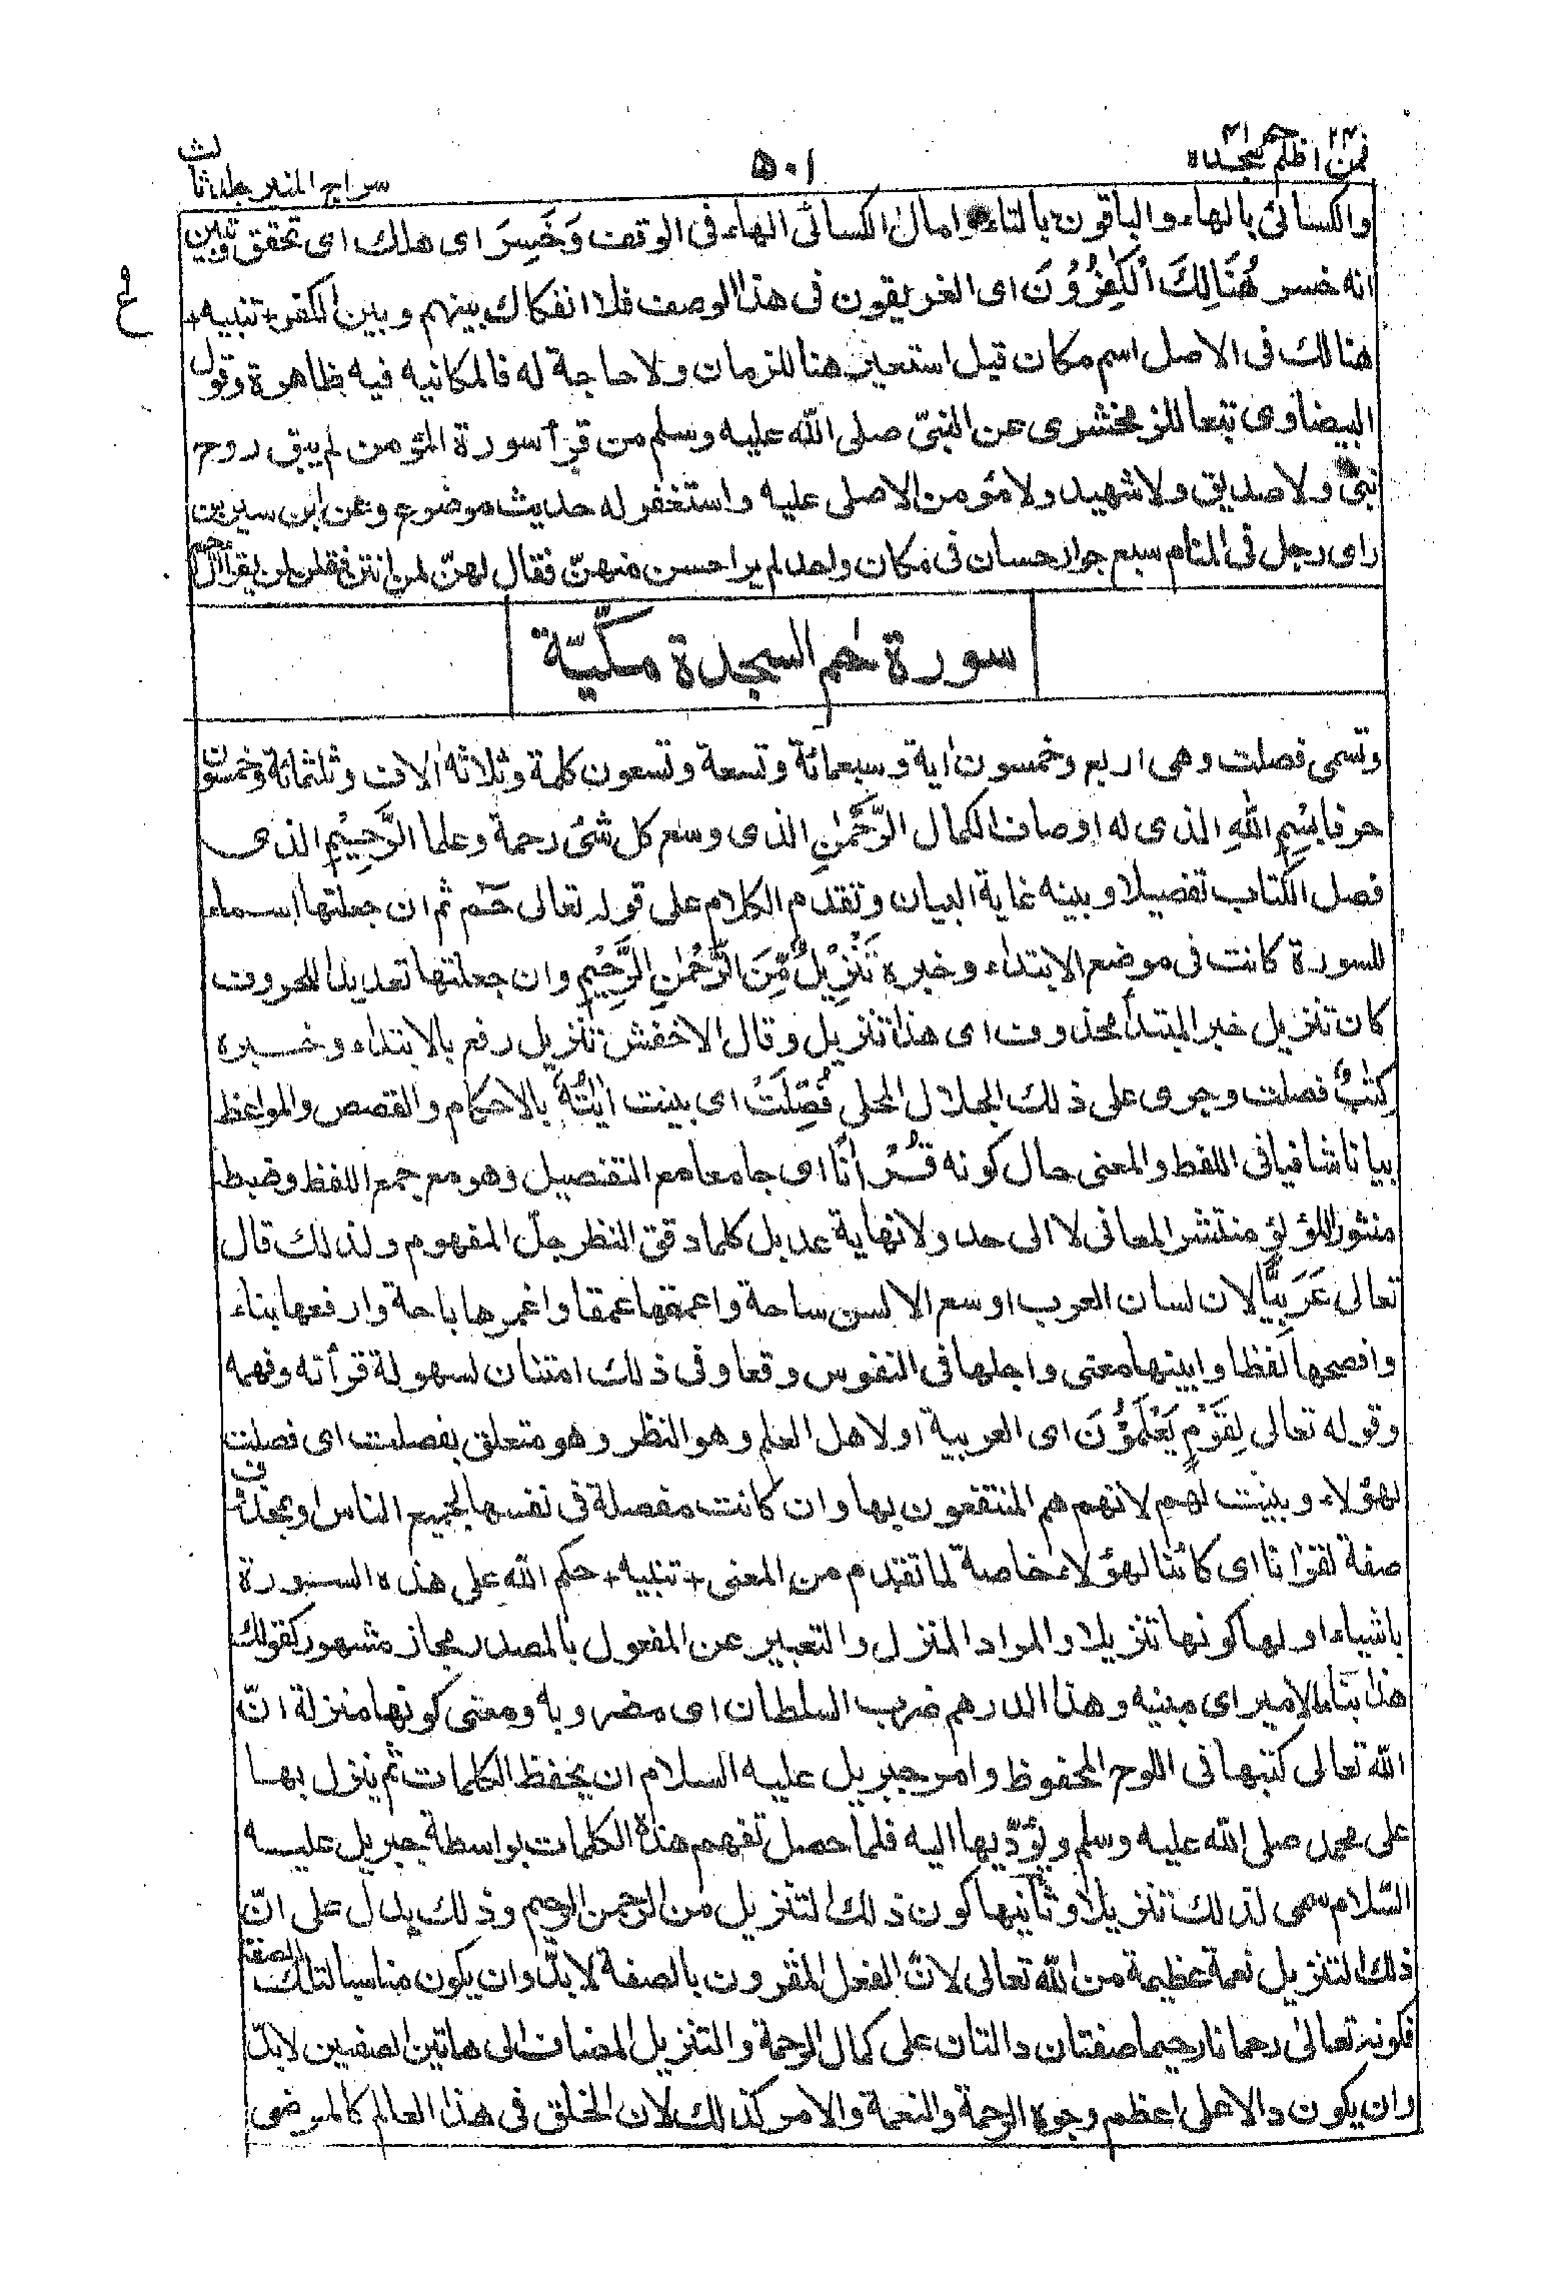 فمن اظلم ۲۴ حم سجده ۴۱
۵۰۱
سراج المنير جلد ثالث
والكسائى بالهاء والباقون بالتاء وامال الكسائى الهاء فى الوقف وَخَسِرَ اى هلك اى تحقق وتبين
انه خسر هُنَالِكَ الْكٰفِرُوْنَ اى الغريقون فى هذا الوصف فلا انفكاك بينهم وبين الكفر + تنبيه +
ع
هنالك فى الاصل اسم مكان قيل استعير هنا للزمان ولا حاجة له فالمكانيه فيه ظاهرة وقول
البيضاوى تبعا للزمخشرى عن النبىّ صلى الله عليه وسلم من قرأ سورة المؤمن لم يبق روح
نبى ولا صديق ولا شهيد ولا مؤمن الا صلى عليه واستغفر له حديث موضوع وعن ابن سيرين
راى رجل فى المنام سبع جوار حسان فى مكان واحد لم ير احسن منهنّ فقال لهنّ لمن انتن فقلن لمن يقرأ ال حم
سورة حٰم السجدة مكّيّة
وتسمى فصلت وهى اربع وخمسون اية وسبعمائة وتسعة وتسعون كلمة وثلاثة الاف وثلثمائة وخمسون
حرفا بِسْمِ اللهِ الذى له اوصاف الكمال الرَّحْمٰنِ الذى وسع كل شئ رحمة وعلما الرَّحِيْمِ الذى
فصل الكتاب تفصيلا وبينه غاية البيان وتقدم الكلام على قوله تعالى حٰمٓ ثم ان جعلتها اسماء
للسورة كانت فى موضع الابتداء وخبره تَنْزِيْلٌ مِّنَ الرَّحْمٰنِ الرَّحِيْمِ وان جعلتها تعديدا للحروف
كان تنزيل خبر المبتدأ محذوف اى هذا تنزيل وقال الاخفش تنزيل رفع بالابتداء وخبره
كِتٰبٌ فصلت وجرى على ذلك الجلال المحلى فُصِّلَتْ اى بينت اٰيٰتُهٗ بالاحكام والقصص والمواعظ
بيانا شافيا فى اللفظ والمعنى حال كونه قُرْاٰنًا اى جامعا مع التفصيل وهو مع جمع اللفظ وضبطه
منثور اللؤلؤ منتشر المعانى لا الى حد ولا نهاية عديل كلما دقق النظر جلّ المفهوم ولذلك قال
تعالى عَرَبِيًّا لان لسان العرب اوسع الالسن ساحة واعمقها عمقا واغمرها باحة وارفعها بناء
وافصحها لفظا وابينها معنى واجلها فى النفوس وقعا وفى ذلك امتنان لسهولة قرأته وفهمه
وقوله تعالى لِقَوْمٍ يَعْلَمُوْنَ اى العربية او لاهل العلم وهو النظر وهو متعلق بفصلت اى فصلت
لهؤلاء وبينت لهم لانهم هم المنتفعون بها وان كانت مفصلة فى نفسها لجميع الناس او بمحذوف
صفة لقرانا اى كائنا لهؤلاء خاصة لما تقدم من المعنى + تنبيه + حكم الله على هذه السورة
باشياء اولها كونها تنزيلا والمراد المنزل والتعبير عن المفعول بالمصدر مجاز مشهور كقولك
هذا بناء الامير اى مبنيه وهذا الدرهم ضرب السلطان اى مضروبه ومعنى كونها منزلة انّ
الله تعالى كتبها فى اللوح المحفوظ وامر جبريل عليه السلام ان يحفظ الكلمات ثم ينزل بها
على محمد صلى الله عليه وسلم ويؤدّيها اليه فلما حصل تفهم هذه الكلمات بواسطة جبريل عليه
السّلام سمى لذلك تنزيلا وثانيها كون ذلك التنزيل من الرحمن الرحيم وذلك يدل على انّ
ذلك التنزيل نعمة عظيمة من الله تعالى لانّ الفعل المقرون بالصفة لابدّ وان يكون مناسبا لتلك الصفة
فكونه تعالى رحمانا رحيما صفتان دالتان على كمال الرحمة والتنزيل المضاف الى هاتين الصفيين لابدّ
وان يكون دالا على اعظم وجوه الرحمة والنعمة والامر كذلك لان الخلق فى هذا العالم كالمرضى